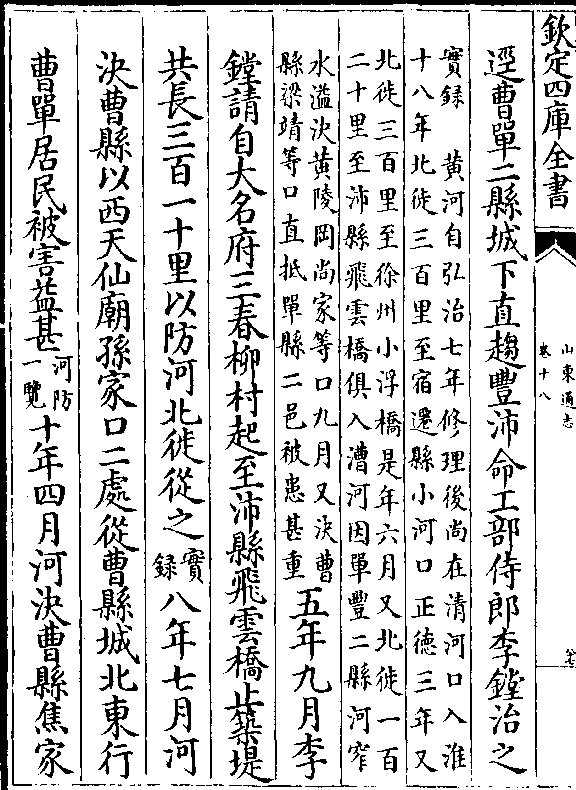 欽定四庫全書
山東通志
卷十八
逕曹單二縣城下直趨豐沛命工部侍郎李鏜治之
實録　黄河自弘治七年修理後尚在清河口入淮
十八年北徙三百里至宿遷縣小河口正德三年又
北徙三百里至徐州小浮橋是年六月又北徙一百
二十里至沛縣飛雲橋俱入漕河因單豐二縣河窄
水溢決黄陵岡尚家等口九月又決曹
縣梁靖等口直抵單縣二邑被患甚重
五年九月李
鏜請自大名府三春柳村起至沛縣飛雲橋止築堤
共長三百一十里以防河北徙從之
實
録
八年七月河
決曹縣以西天仙廟孫家口二處從曹縣城北東行
曹單居民被害益甚
河防
一覽
十年四月河決曹縣焦家